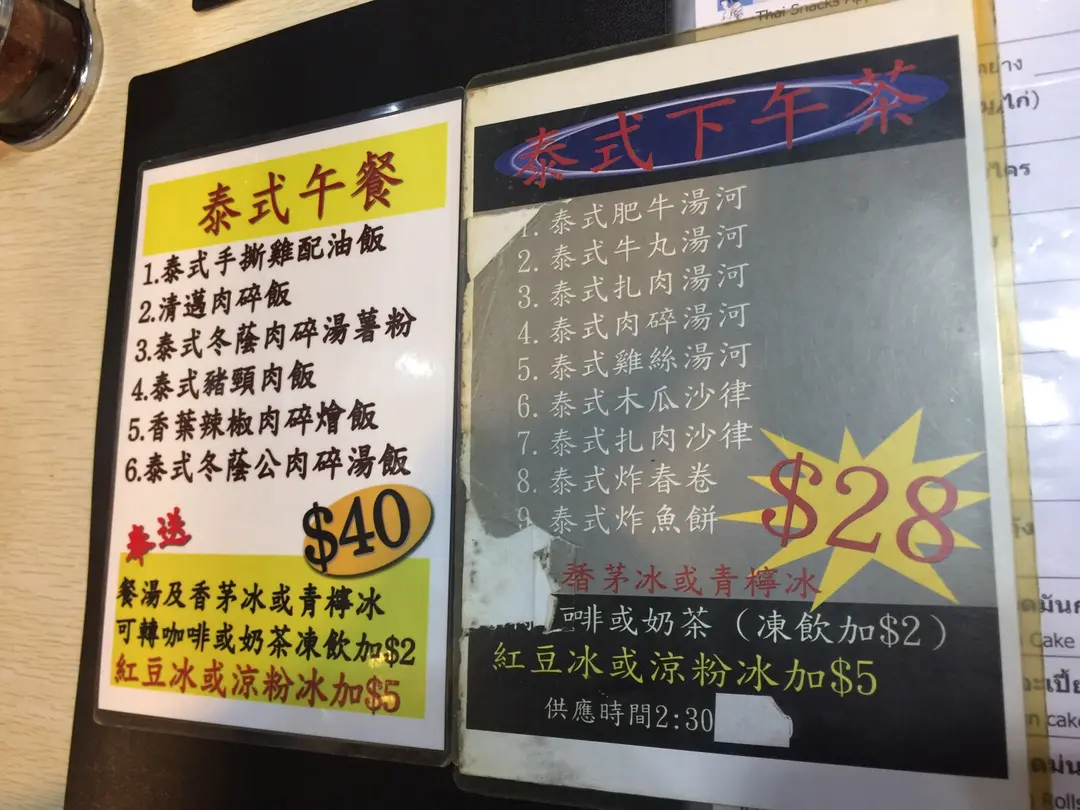 泰式午餐
1.泰式手撕雞配油飯
2.清邁肉碎飯
3.泰式冬蔭肉碎湯薯粉
4.泰式豬頸肉飯
5.香葉辣椒肉碎燴飯
6.泰式冬蔭公肉碎湯飯
$40
奉送
餐湯及香茅冰或青檸冰
可轉咖啡或奶茶凍飲加$2
紅豆冰或涼粉冰加$5
泰式下午茶
1. 泰式肥牛湯河
2. 泰式牛丸湯河
3. 泰式扎肉湯河
4. 泰式肉碎湯河
5. 泰式雞絲湯河
6. 泰式木瓜沙律
7. 泰式扎肉沙律
8. 泰式炸春卷
9 泰式炸魚餅
$28
香茅冰或青檸冰
啡或奶茶（凍飲加$2）
紅豆冰或涼粉冰加$5
供應時間2:30
Thai Snacks
ไก่)
Cake
cake
Rolls